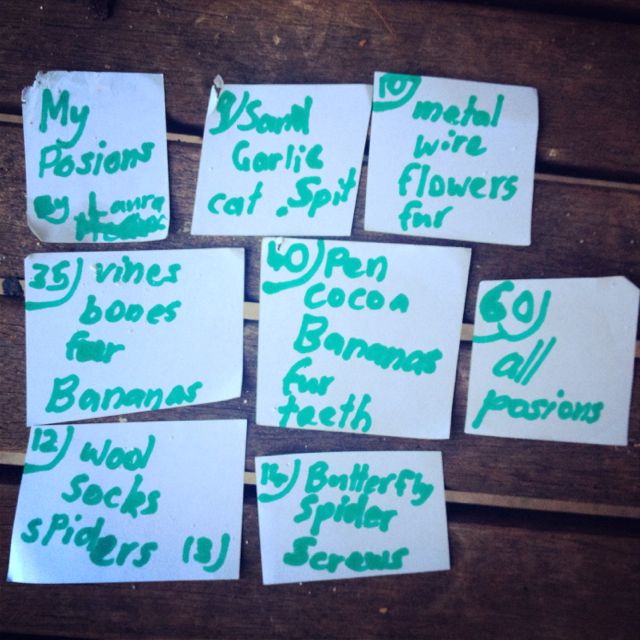 My
Posions
By Laura
9) Sand
Garlic
cat Spit
10)
metal
wire
flowers
fur
35) vines
bones
fur
Bananas
40) Pen
cocoa
Bananas
fur
teeth
60)
all
posions
12) Wool
socks
spiders (3)
Butterfly
Spider
Screws